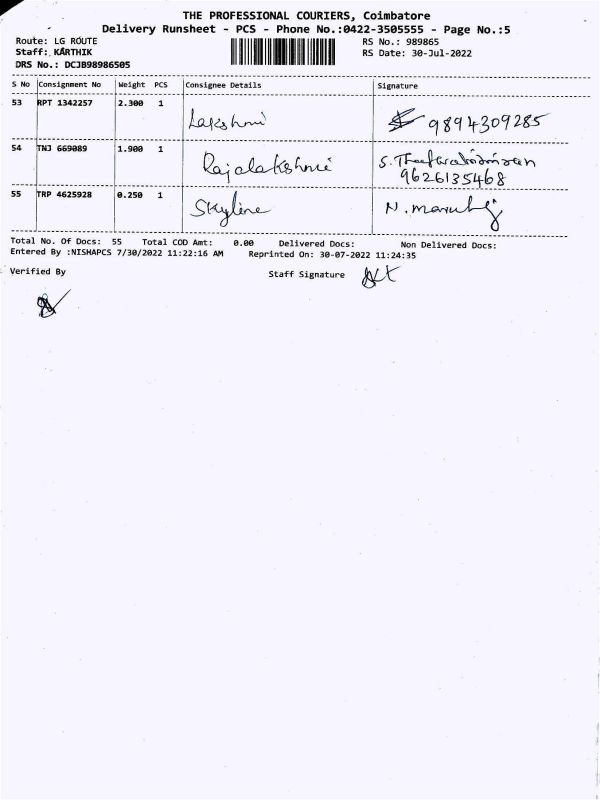 THE PROFESSIONAL COURIERS, Coimbatore
Delivery Runsheet - PCS - Phone No.:0422-3505555 - Page No.:5
Route: LG ROUTE RS No.: 989865
Staff: KARTHIK RS Date: 30-Jul-2022
DRS No.: DCJB98986505
S No Consignment No Weight PCS Consignee Details Signature
53 RPT 1342257 2.300 1 Lakshmi 9894309285
54 TNJ 669089 1.900 1 Rajalakshmi S.
9626135468
55 TRP 4625928 0.250 1 Skyline N.
Total No. Of Docs: 55 Total COD Amt: 0.00 Delivered Docs: Non Delivered Docs:
Entered By :NISHAPCS 7/30/2022 11:22:16 AM Reprinted On: 30-07-2022 11:24:35
Verified By Staff Signature